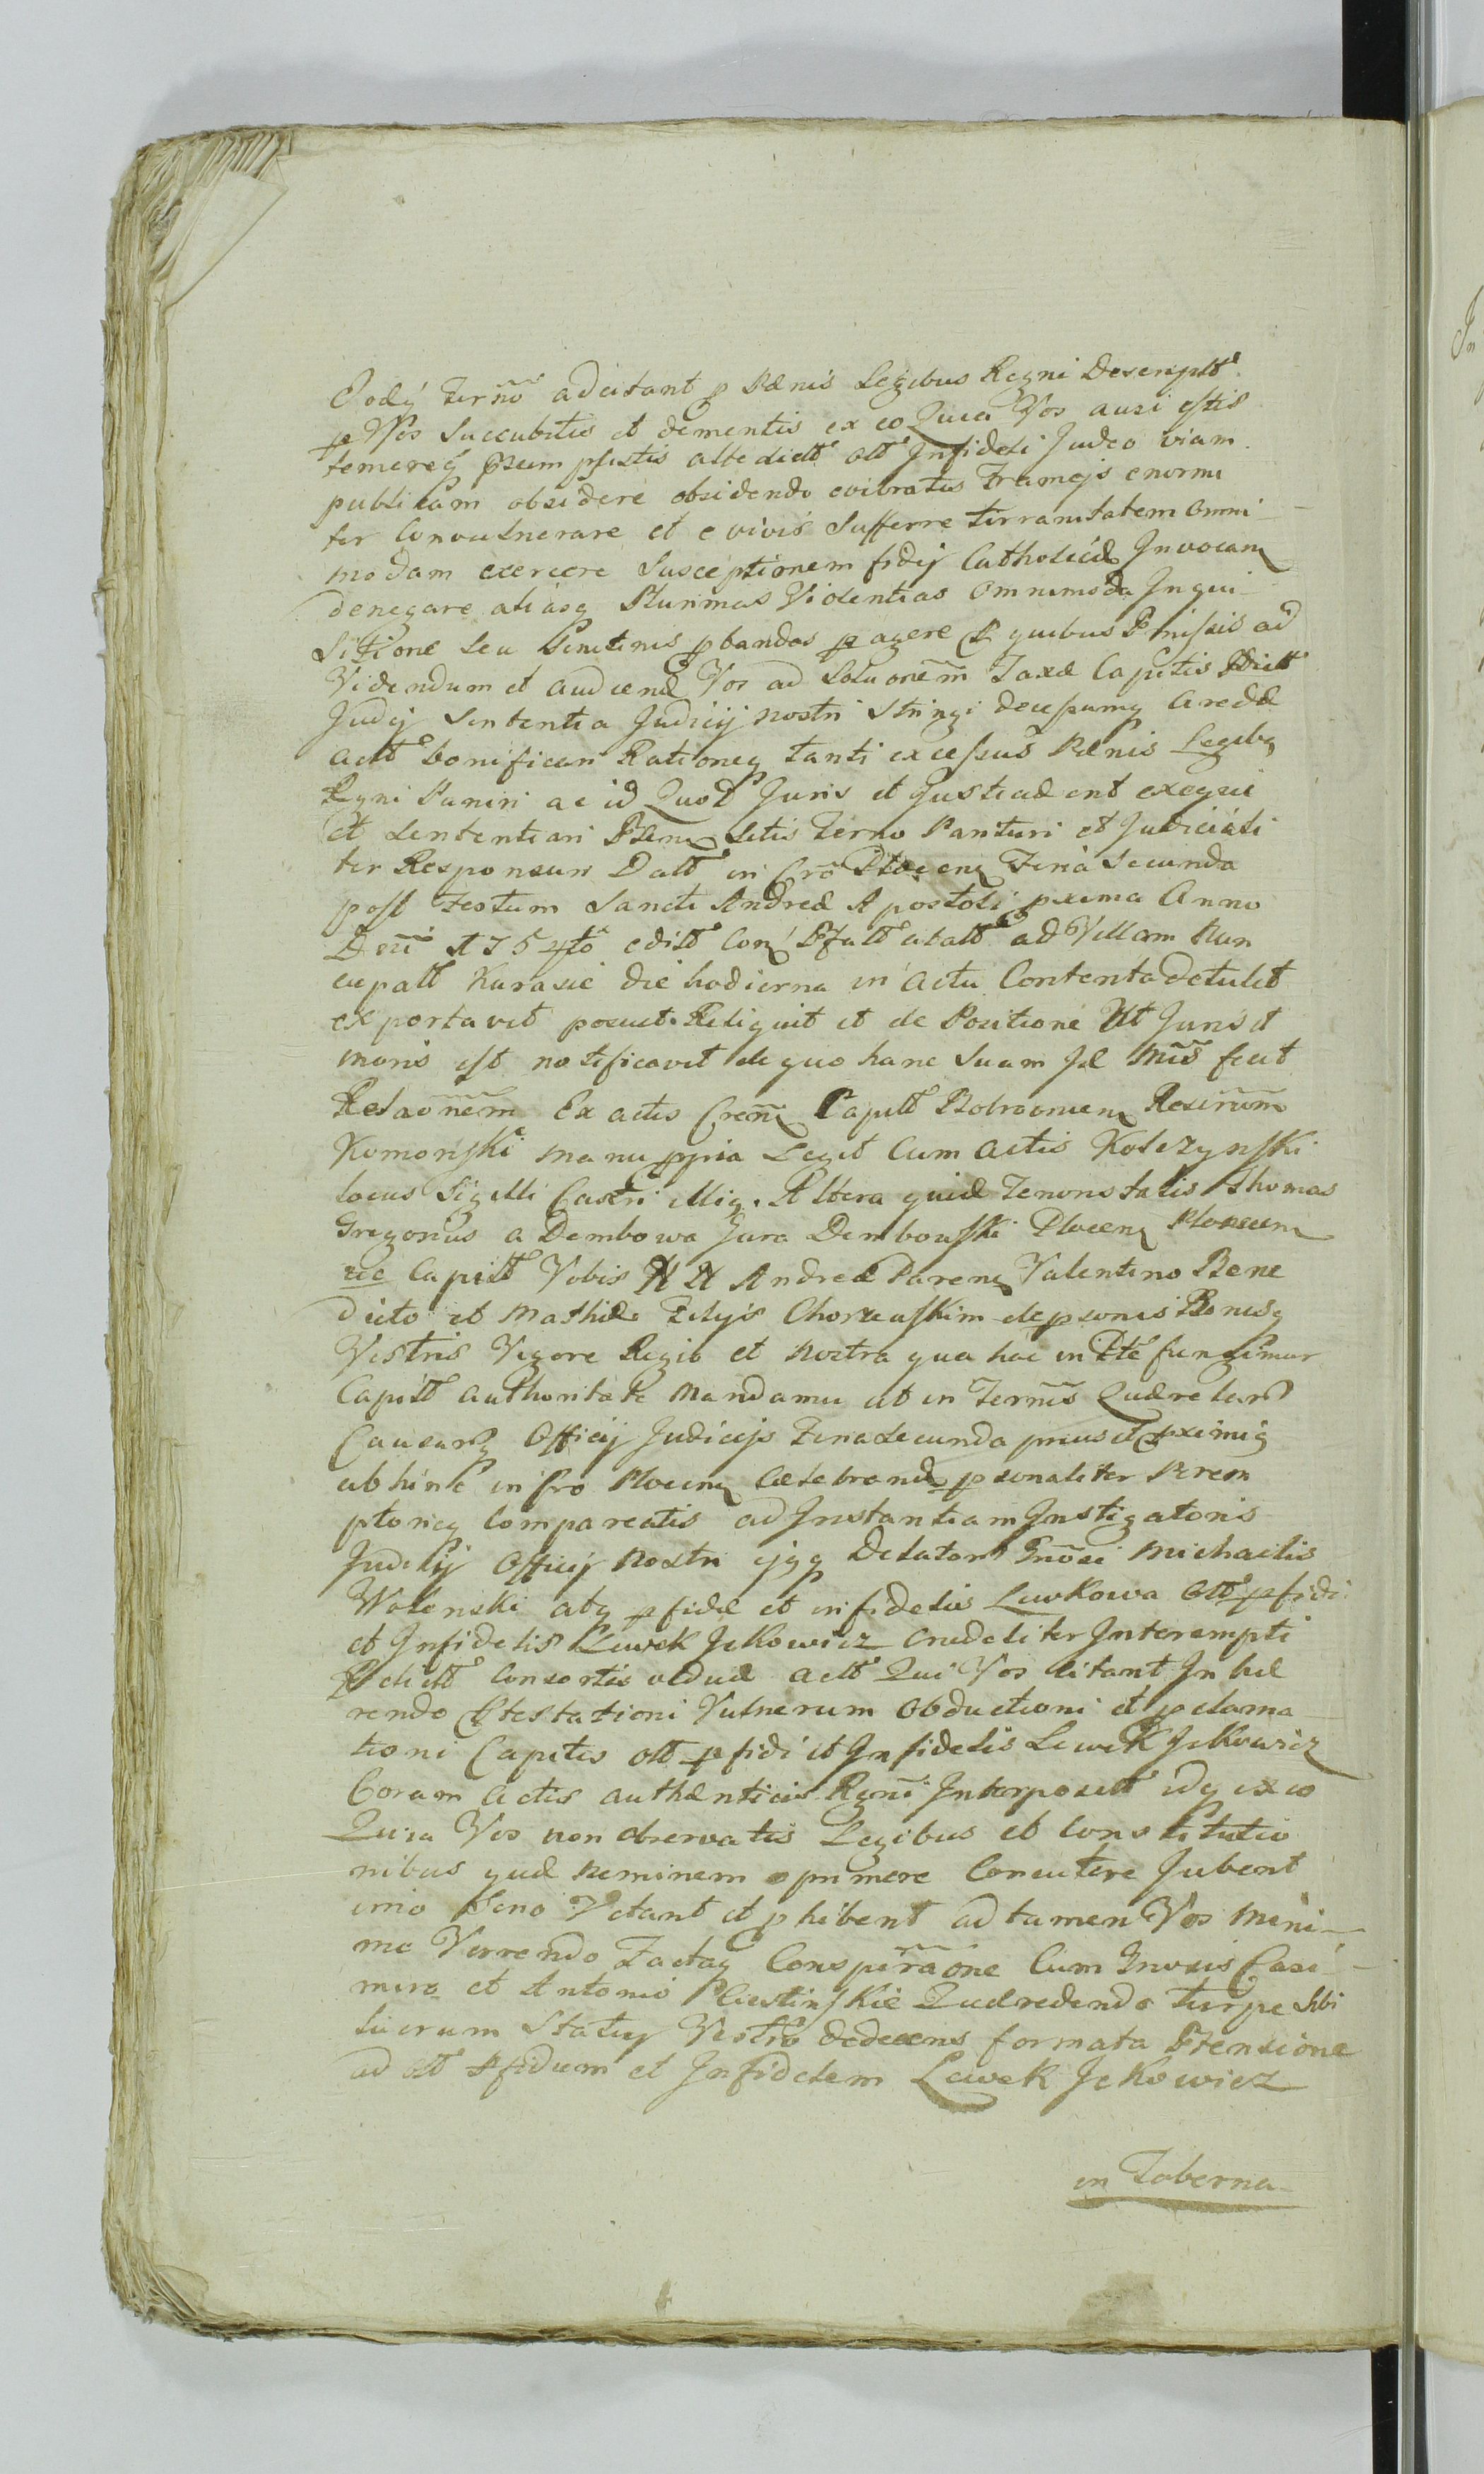 Eodq̃ Terñno adcitant p Pænis Legibus Regni Descriptt
p Vos Succubitis et dementis ex eo Quia Vos ausi estis
temereq̃ psumpsistis abbe dictt olt Infideli Judeo viam
publicam obsidere obsidendo evibratis Frameis enormi
ter Convulnerare et e vivis Sufferre tirranitatem omni
modam exercere Susceptionem fidei Catholicæ Invocan
denegare aliasq Plurimas Violentias omnimoda Inqui
sitione seu Scrutinis pbandas pagere P quibus Pmissis ad
Videndum et audiend Vos ad Soluonem Taxæ Capitis Pdict
Judei Sententia Judicij nostri Stringi
actt bonificari Rationeq tanti excessus Pænis Legibq
Regni Puniri ac id Quod Juris et Justitiæ ent exequi
et Sententiari Psens Sitis Terno Parituri et Judiciali
ter Responsuri Datt in Cro Plocens Feria Secunda
post Festum Sancti Andreæ Apostoli pxima Anno
Dni 1754to editt Con Pfatt citatt ad Villam Nun
cupatt Kurasie die hodierna in actu Contenta Detulit
exportavit posuit Reliquit et de Positione Ut Juris et
moris est notificavit de quo hanc Suam Id Mris fecit
Relaonem Ex actis Crens Capitt Bobrovniens Resirum
Komorski manu ppria Legit Cum actis Kolczynski
locus Sigilli Castri illiq. Altera quid Tenoris talis Thomas
Gregorius a Dembowa Gura Dembowski Plocens
Capitt Vobis N N Andreæ Parens Valentino Bene
dicto et Mathiæ Filijs Chorzewskim de psonis Bonisq
Vestris Vigore Regio et Nostra qua hac in Pte fungimur
Capitt authoritate Mandamu ut in Ternis Quærelar
Causarq Officij Judicijs Feria Secunda prius et pximiq
ab hinc in Cro Plocens Celebrand psonaliter Perem
ptorieq Compareatis ad Instantiam Instigatoris
Judicij Officij Nostri ejqq Delatoris Gnosi Michaelis
Wolenski atq pfidæ et infidelis Lewkowa Olt pfidi
et Infidelis Lewek Jekowicz Crudeliter Interempti
Relictt Consortis viduæ actt Qui Vos citant In hæ
rendo Ptestationi Vulnerum obductioni et pclama
tioni Capitis olt pfidi et Infidelis Lewek Jekowicz
Coram actis authenticis Regni Interpositt idq ex eo
Quia Vos non observatis Legibus et Constitutio
nibus quæ neminem opprimere Concutere Jubent
imo Seno Vetant et phibent ad tamen Vos Mini
me Verrendo Factaq Conspiraone Cum Gnosis Casi
miro et Antonio Pliestinskie Quærendo turpe Sibi
lucrum Statuq Vestro dedecens formata Ptensione
ad olt Pfidum et Infidelem Lewek Jekowicz
in Taberna